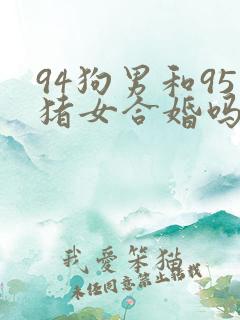 94狗男和95
猪女合婚吗
我爱笨猫
未经同意禁止转载